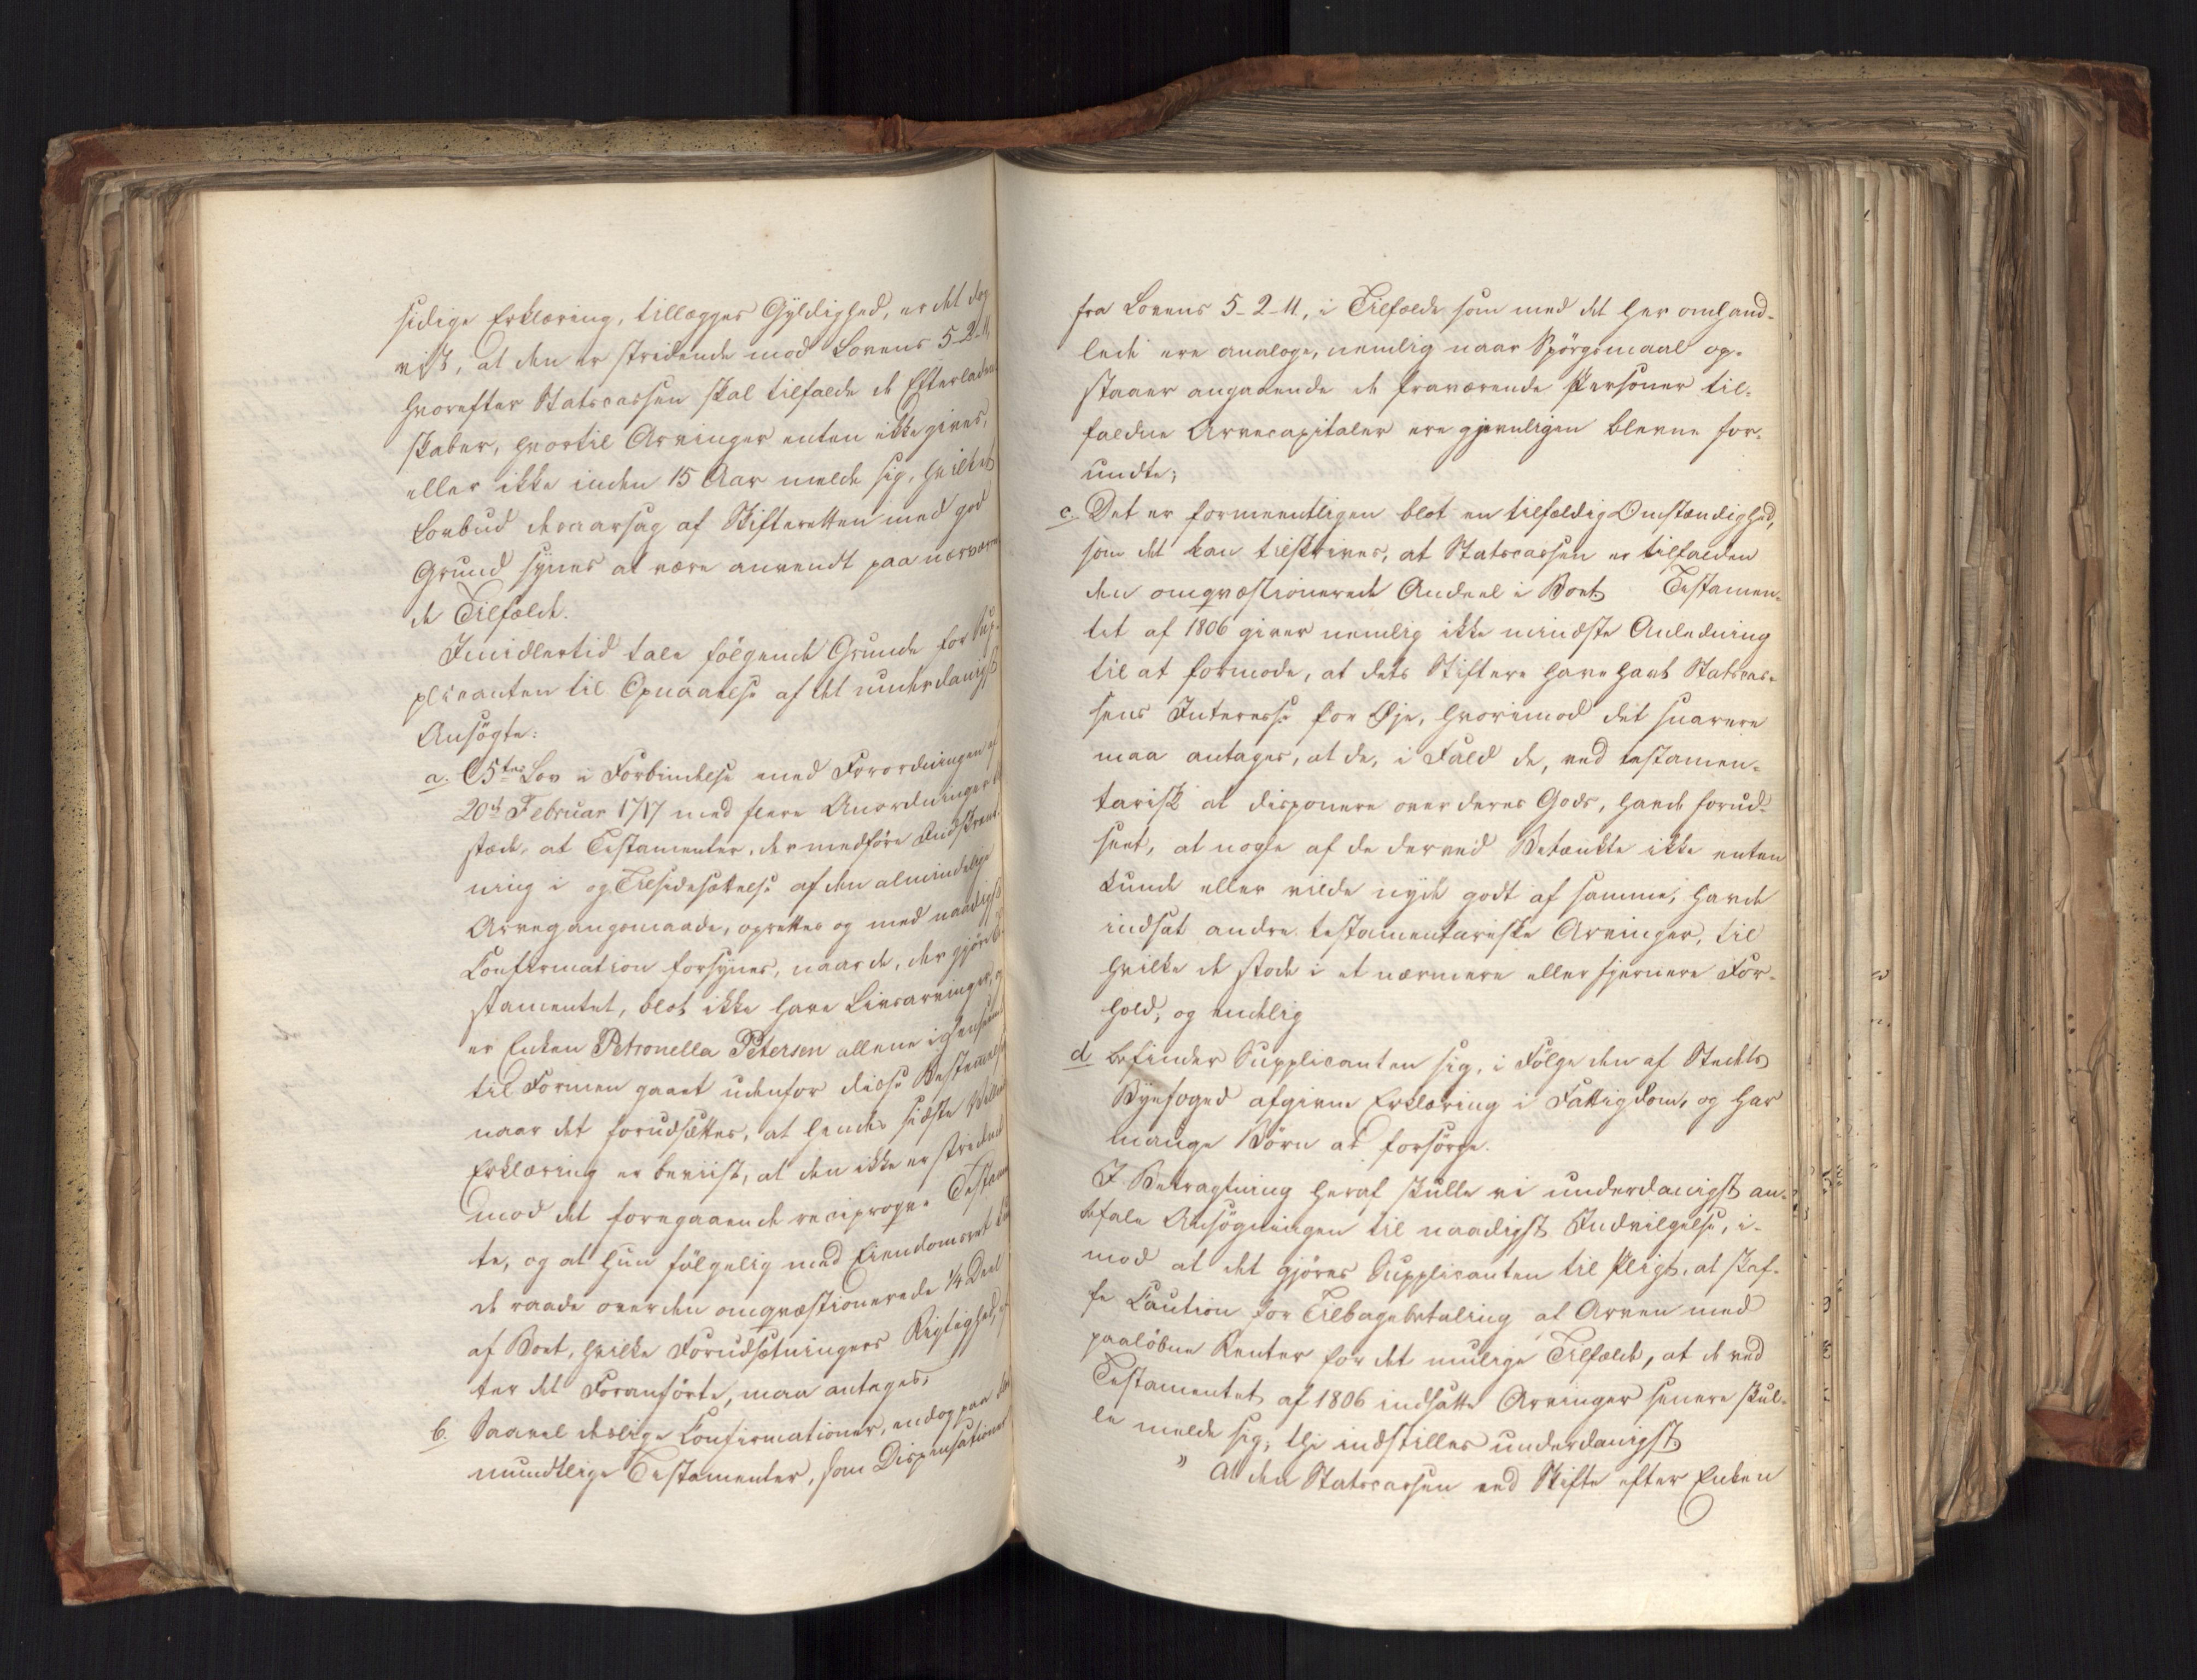 sidige Erklæring, tillægges Gyldighed, er det dog
vist, at den er stridende mod Lovens 5-2-11
hvorefter Statscassen skal tilfalde de Efterladen
skaber, hvortil Arvinger enten ikke gives,
eller ikke inden 15 Aar melde sig, hvilket
Lovbud desaarsag af Skifteretten med god
Grund synes at være anvendt paa nærværen
de Tilfælde.
Imidlertid tale følgende Grunde for Sup-
plicanten til Opnaaelse af det underdanigst
Ansøgte:
a. C5tes Lov i Forbindelse med Forordningen af
20de Februar 1717 med flere Anordninger til
stæde, at Testamenter, der medføre Indskrænk-
ning i og Tilsidesættelse af den almindelige
Arvegangsmaade, oprettes og med naadigst
Confirmation forsynes, naar de, der gjøre Te-
stamentet, blot ikke have Livsarvinger, og
er Enken Petronella Petersen allene i Henseende
til Formen gaaet udenfor disse Bestemmelser
naar det forudsættes, at hendes sidste Villies
Erklæring er beviist, at den ikke er stridende
mod det foregaaende reciproqve Testamen
te, og at hun følgelig med Eiendomsret kun
de raade over den omqvæstionerede 1/4 Deel
af Boet, hvilke Forudsætningers Rigtighed, ef
ter det Foranførte, maa antages;
b. Saavel deslige Confirmationer, endog paa
mundtlige Testamenter, som Dispensationer
fra Lovens 5-2-11, i Tilfælde som med det her omhand-
lede ere analoge, nemlig naar Spørgsmaal op-
staaer angaaende de fraværende Personer til-
faldne Arvecapitaler ere gjevnligen blevne for-
undte;
c. Det er formeentligen blot en tilfældig Omstændighed,
som det kan tilskrives, at Statscassen er tilfalden
den omqvæstionerede Andeel i Boet. Testamen-
tet af 1806 giver nemlig ikke mindste Anledning
til at formode, at dets Stiftere have havt Statscas-
sens Interesse for Øje, hvorimod det snarere
maa antages, at de, i Fald de, ved testamen-
tarisk at disponere over deres Gods, havde forud-
seet, at nogle af de derved Betænkte ikke enten
kunde eller vilde nyde godt af samme, havde
indsat andre testamentariske Arvinger, til
hvilke de stode i et nærmere eller fjernere For-
hold; og endelig
d. befinder Supplicanten sig, i Følge den af Stedets
Byefoged afgivne Erklæring i Fattigdom, og har
mange Børn at forsørge.
I Betragtning heraf skulle vi underdanigst an-
befale Ansøgningen til naadigst Indvilgelse, i-
mod at det gjøres Supplicanten til Pligt, at skaf-
fe Caution for Tilbagebetaling af Arven med
paaløbne Renter for det mulige Tilfælde, at de ved
Testamentet af 1806 indsatte Arvinger senere skul-
le melde sig; thi indstilles underdanigst:
" At den Statscassen ved Skifte efter Enken